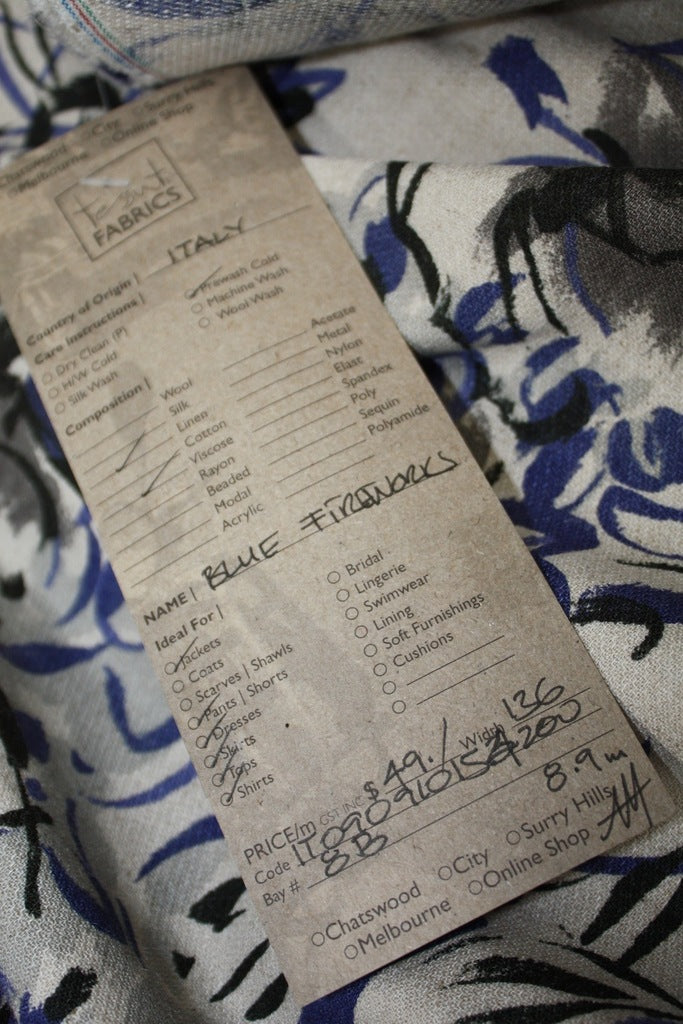 Chatswood City Surry Hills
Melbourne Online Shop
FABRICS
Country of Origin | ITALY
Care Instructions |
Dry Clean (P)
H/W Cold
Silk Wash
Prewash Cold
Machine Wash
Wool Wash
Composition |
Wool
Silk
Linen
Cotton
Viscose
Rayon
Beaded
Modal
Acrylic
Acetate
Metal
Nylon
Elast
Spandex
Poly
Sequin
Polyamide
NAME | BLUE FIREWORKS
Ideal For |
Jackets
Coats
Scarves | Shawls
Pants | Shorts
Dresses
Skirts
Tops
Shirts
Bridal
Lingerie
Swimwear
Lining
Soft Furnishings
Cushions
PRICE/m GST INC $ 49./ Width 136
Code
Bay # 8B 8.9m
Chatswood City Surry Hills
Melbourne Online Shop